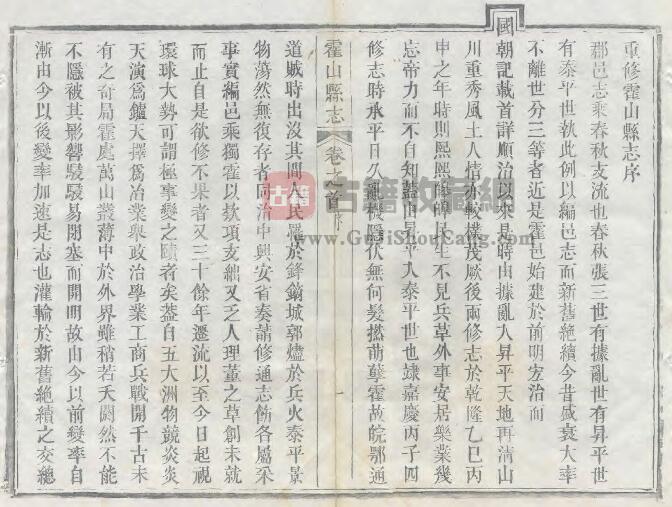 重修霍山縣志序
郡邑志乘春秋支流也春秋張三世有據亂世有昇平世
有泰平世執此例以編邑志而新舊絶續今昔盛衰大率
不離世分三等者近是霍邑始建於前明宏治而
國朝記載首詳順治以來是時由據亂入昇平天地再清山
川重秀風土人情亦較樸茂厥後兩修志於乾隆乙巳丙
申之年時則熙熙皞皞民生不見兵革外事安居樂業幾
忘帝力而不自知蓋由昇平入泰平世也逮嘉慶丙子四
修志時承平日久亂機隱伏無何髮撚萌孽霍故皖鄂通
霍山縣志
卷之首
序
一
道賊時出沒其間人民罹於鋒鏑城郭燼於兵火泰平景
物蕩然無復存者同治中興安省奏請修通志飭各屬采
事實編邑乘獨霍以欵項支絀又乏人理董之草創未就
而止自是欲修不果者又三十餘年遷流以至今日起視
環球大勢可謂極事變之賾者矣蓋自五大洲物競炎炎
天演爲鑪天擇爲冶業舉政治學業工商兵戰開千古未
有之奇局霍處萬山叢薄中於外界雖稍若夭閼然不能
不隱被其影響駸駸易閉塞而開明故由今以前變率自
漸由今以後變率加速是志也灌輸於新舊絶續之交總
古籍
古籍收藏網
www.GuJiShouCang.com